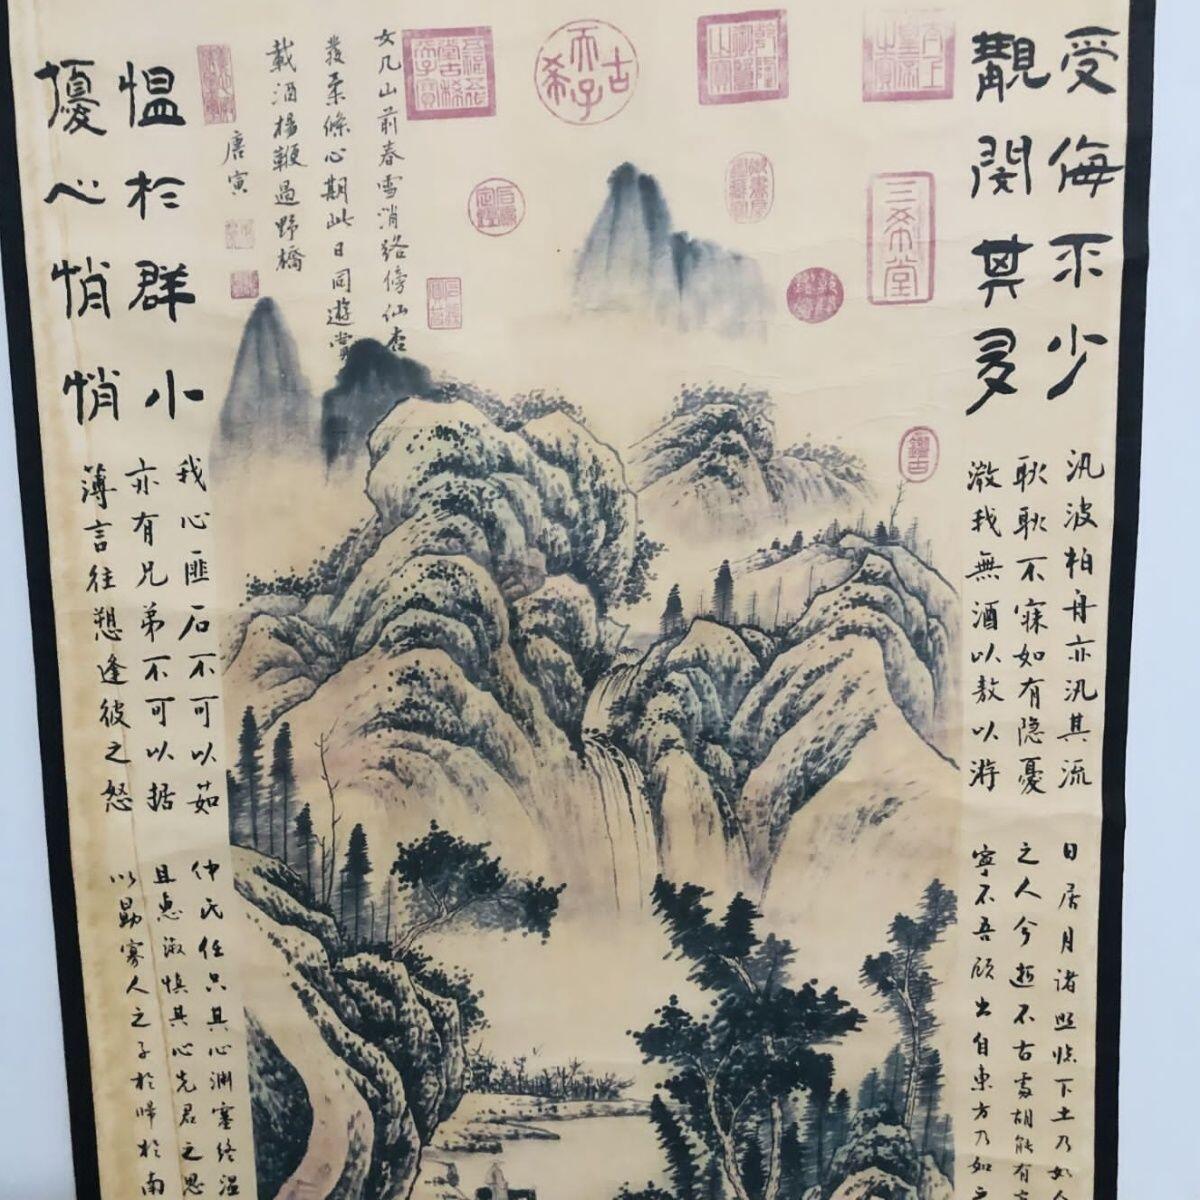 受侮不少
覯閔其多
汎波柏舟亦汎其流
耿耿不寐如有隐憂
微我無酒以敖以游
日居月諸照臨下土乃如
之人兮逝不古處胡能有
寧不吾顾出自東方乃如
三希堂
鑑古
古希天子
女几山前春雪消路傍仙杏
發柔條心期此日同遊賞
載酒楊鞭過野橋
唐寅
愠於群小
擾心悄悄
我心匪石不可以茹
亦有兄弟不可以据
薄言往愬逢彼之怒
仲氏任只其心渊塞终温
且惠淑慎其心先君之思
以勖寡人之子於歸於南